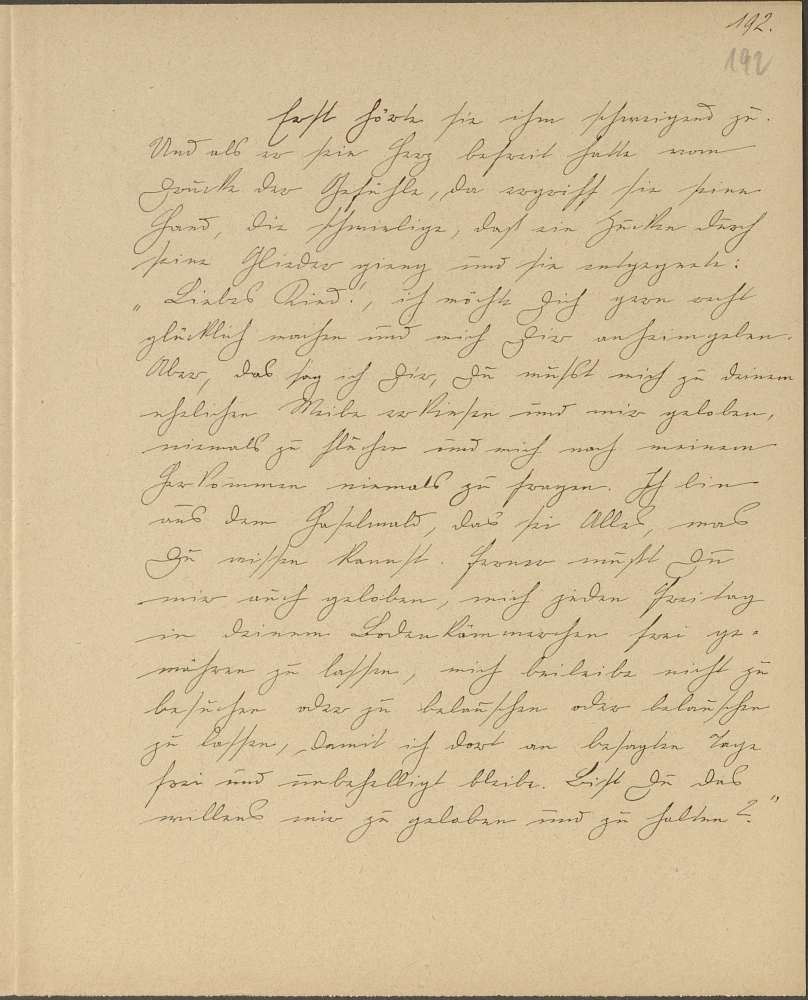 192.
192
Erst hörte sie ihm schweigend zu.
Und als er sein Herz befreit hatte vom
Drucke der Gefühle, da ergriff sie seine
Hand, die schwielige, daß ein Zucken durch
seine Glieder gieng und sie entgegnete:
„Liebes Kind!, ich möchte Dich gern recht
glücklich machen und mich Dir anheimgeben.
Aber, das sag ich Dir, Du mußt mich zu deinem
ehelichen Weibe erkiesen und mir geloben,
niemals zu fluchen und mich nach meinem
Herkommen niemals zu fragen. Ich bin
aus dem Haselwald, das sei Alles, was
Du wissen kannst. Ferner mußt Du
mir auch geloben, mich jeden Freitag
in deinem Bodenkämmerchen frei ge-
währen zu lassen, mich beileibe nicht zu
besuchen oder zu belauschen oder belauschen
zu lassen, damit ich dort an besagten Tage
frei und unbehelligt bleibe. Bist Du das
willens mir zu geloben und zu halten?"